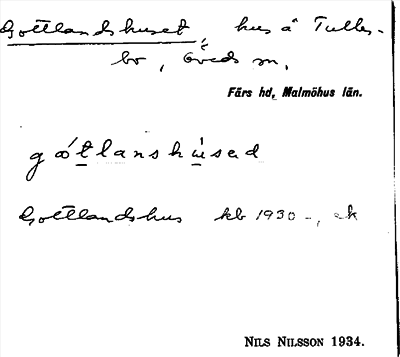 Gottlandshuset, hus å Tulles-
bo, Öveds sn,
Färs hd, Malmöhus län.
gótlanshùsed
Gottlandshus kb 1930 -, ek
NILS NILSSON 1934.